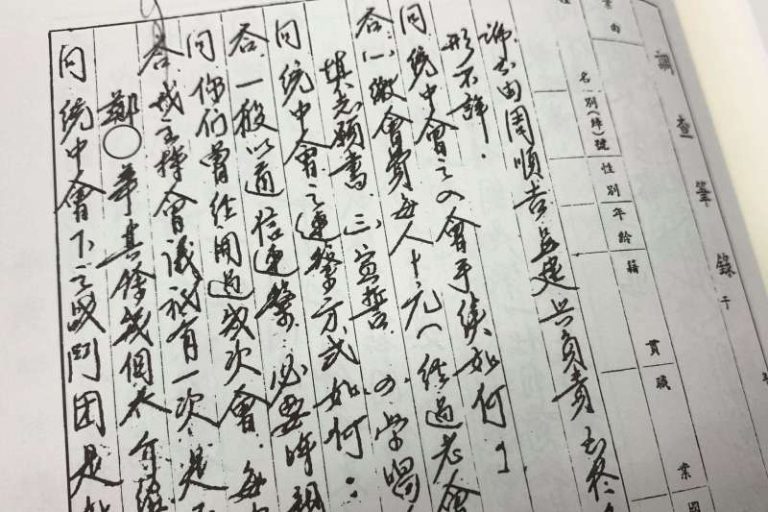 調查筆錄
案由
名
別(綽)號
性別
年齡
籍貫
職業
由周順吉吳建興負責
形不詳.
問統中會之入會手續如何?
答(一)繳會費每人十元(經過老會
填志願書 (三)宣誓 學唱
問統中會之連繫方式如何:
答一般以通信連繫 必要時親
問你們曾經開過幾次會 每
答我主持會議祇有一次 是
鄭○華其餘幾個
問統中會下之戰鬥團是